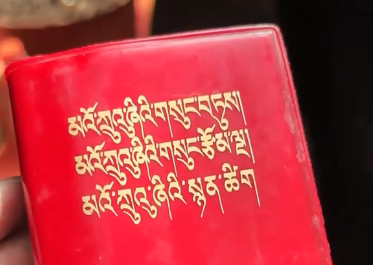 མའོ་ཀྲུའུ་ཞིའི་གསུང་བཏུས།
མའོ་ཀྲུའུ་ཞིའི་གསུང་རྩོམ་ལྔ།
མའོ་ཀྲུའུ་ཞིའི་སྙན་ཚིག